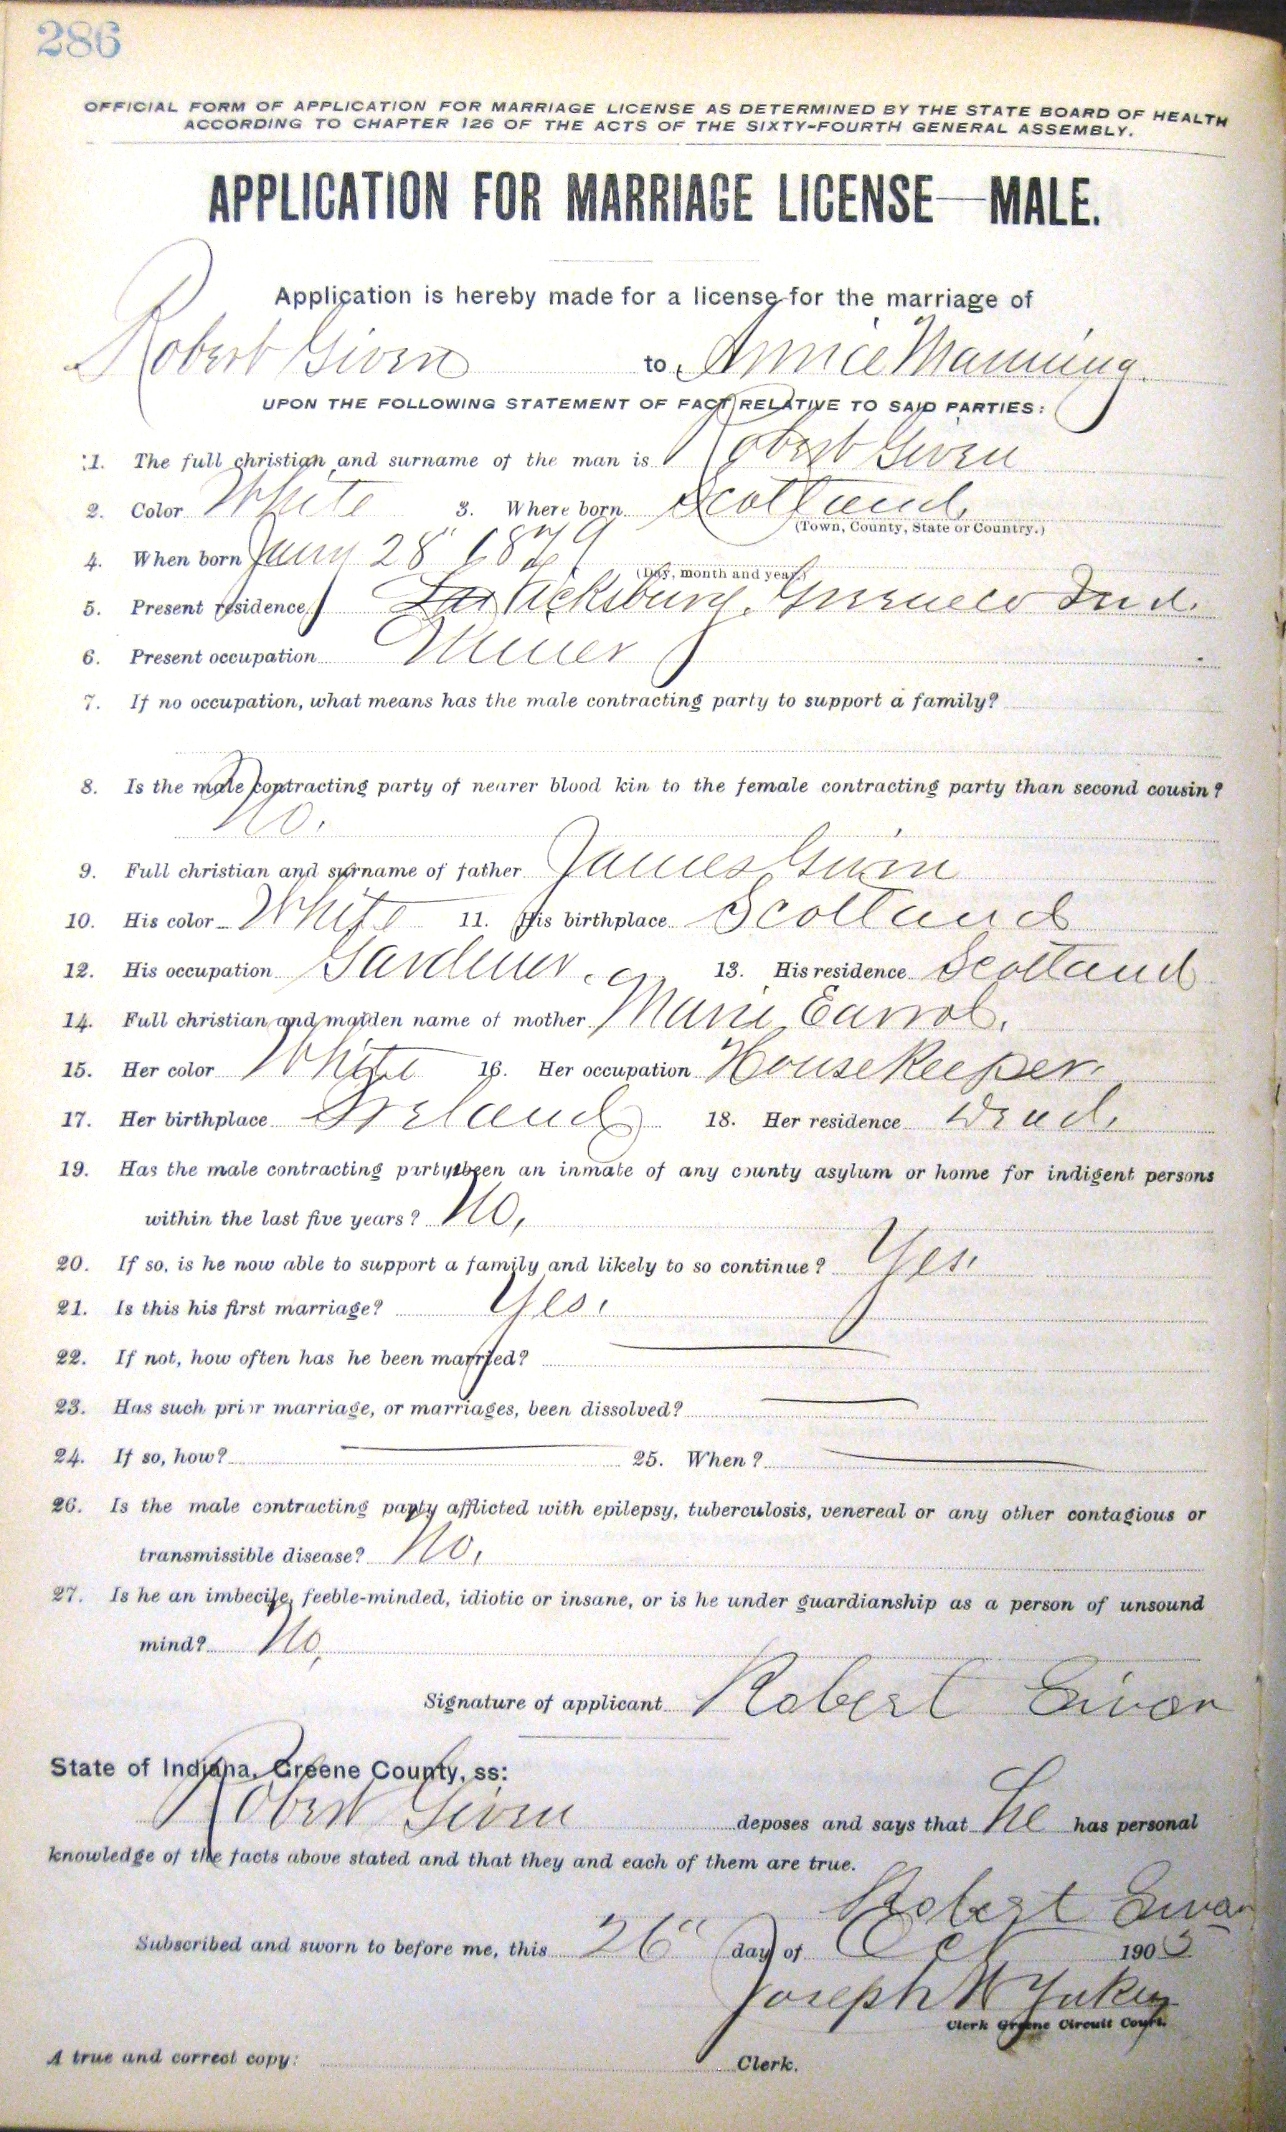 286
OFFICIAL FORM OF APPLICATION FOR MARRIAGE LICENSE AS DETERMINED BY THE STATE BOARD OF HEALTH
ACCORDING TO CHAPTER 126 OF THE ACTS OF THE SIXTY-FOURTH GENERAL ASSEMBLY.
APPLICATION FOR MARRIAGE LICENSE—MALE.
Application is hereby made for a license for the marriage of
Robert Given to Annie Manning.
UPON THE FOLLOWING STATEMENT OF FACT RELATIVE TO SAID PARTIES:
1. The full christian and surname of the man is Robert Given
2. Color White 3. Where born Scotland.
(Town, County, State or Country.)
4. When born 28" 1879
(Day, month and year.)
5. Present residence Vicksburg, Greene Co Ind.
6. Present occupation Miner
7. If no occupation, what means has the male contracting party to support a family?
8. Is the male contracting party of nearer blood kin to the female contracting party than second cousin?
No.
9. Full christian and surname of father James Given
10. His color White 11. His birthplace Scotland
12. His occupation Gardener. 13. His residence Scotland
14. Full christian and maiden name of mother
15. Her color White 16. Her occupation Housekeeper.
17. Her birthplace Ireland 18. Her residence Dead.
19. Has the male contracting party been an inmate of any county asylum or home for indigent persons
within the last five years? No,
20. If so, is he now able to support a family and likely to so continue? Yes.
21. Is this his first marriage? Yes.
22. If not, how often has he been married?
23. Has such prior marriage, or marriages, been dissolved?
24. If so, how? 25. When?
26. Is the male contracting party afflicted with epilepsy, tuberculosis, venereal or any other contagious or
transmissible disease? No.
27. Is he an imbecile, feeble-minded, idiotic or insane, or is he under guardianship as a person of unsound
mind? No,
Signature of applicant Robert Givan
State of Indiana, Greene County, ss:
Robert Given deposes and says that he has personal
knowledge of the facts above stated and that they and each of them are true.
Robert Givan
Subscribed and sworn to before me, this 26" day of Oct 1905
Joseph W Yakey
Clerk Greene Circuit Court.
A true and correct copy: Clerk.